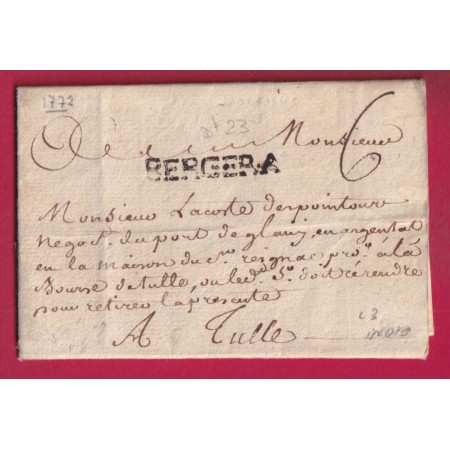 1772
Dt 23
A Monsieur
6
BERGERA
Monsieur Lacoste despointoux
negoct. du port de glany en argentat
en la maison du sr. reignac pro. a la
Bourse de tulle, ou led. sr. doit se rendre
pour retirer la presente
A Tulle
L 3
INDI 9